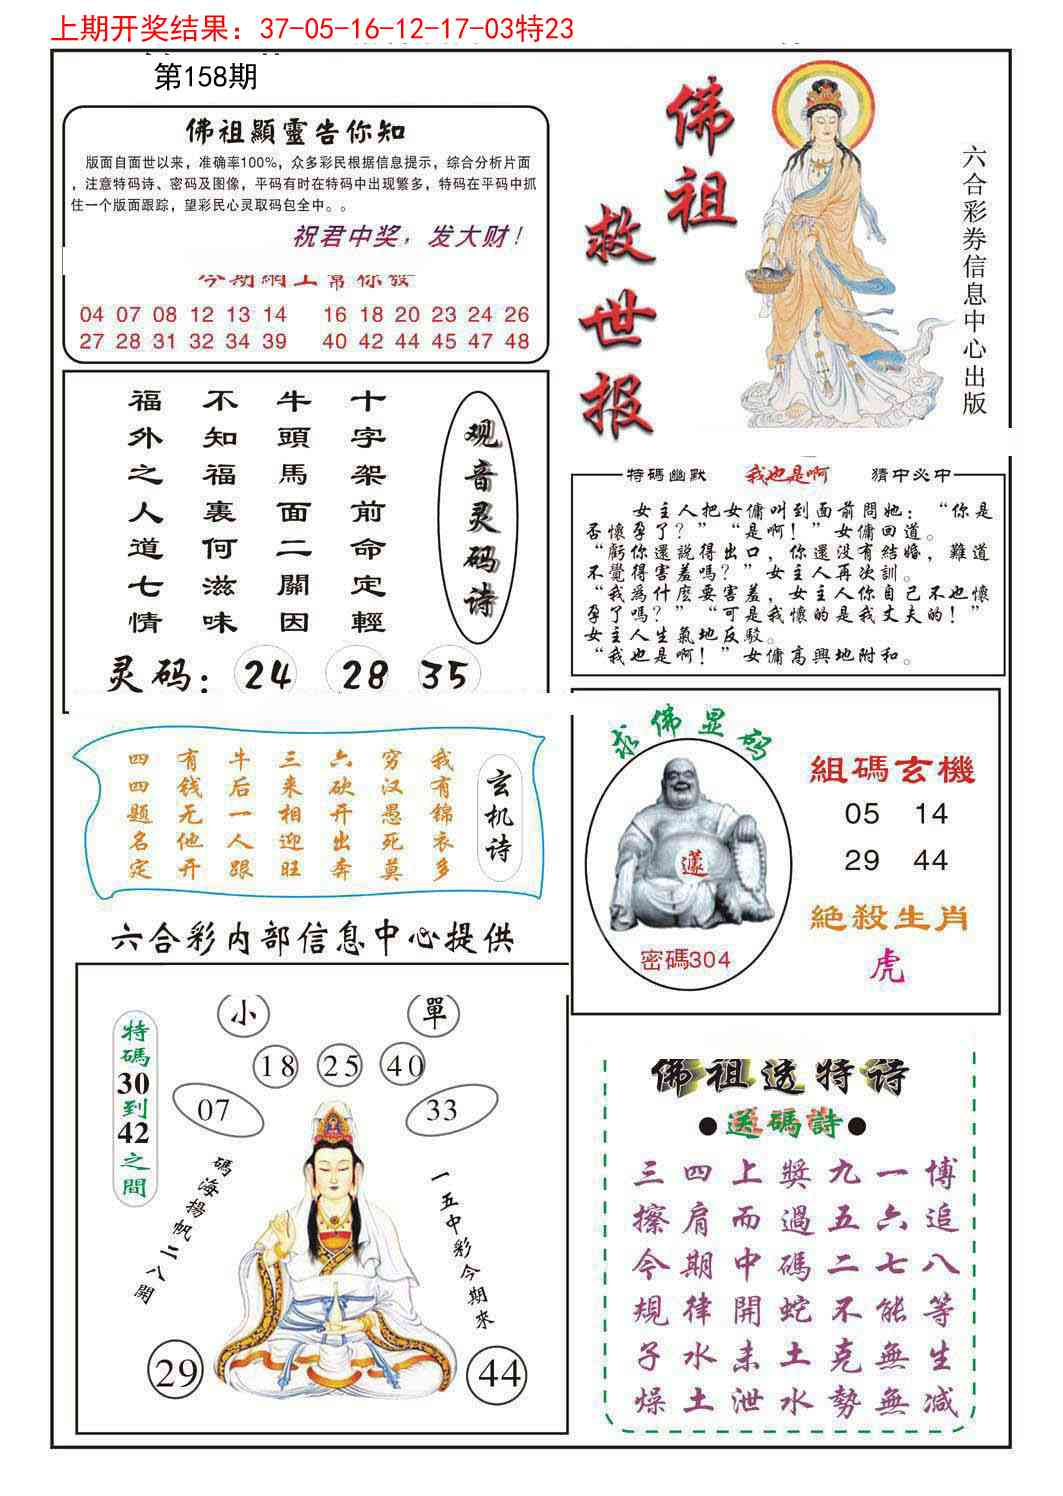 上期开奖结果：37-05-16-12-17-03特23
第158期
佛祖顯靈告你知
版面自面世以来，准确率100%，众多彩民根据信息提示，综合分析片面
，注意特码诗、密码及图像，平码有时在特码中出现繁多，特码在平码中抓
住一个版面跟踪，望彩民心灵取码包全中。。
祝君中奖，发大财！
今期網上幫你發
04 07 08 12 13 14 16 18 20 23 24 26
27 28 31 32 34 39 40 42 44 45 47 48
佛祖
救世报
六合彩券信息中心出版
观音灵码诗
十字架前命定輕
牛頭馬面二關因
不知福裏何滋味
福外之人道七情
灵码：24 28 35
特碼幽默 我也是啊 猜中必中
女主人把女傭叫到面前問她：“你是
否懷孕了？”“是啊！”女傭回道。
“虧你還説得出口，你還没有結婚，難道
不覺得害羞嗎？”女主人再次訓。
“我為什麽要害羞，女主人你自己不也懷
孕了嗎？”“可是我懷的是我丈夫的！”
女主人生氣地反駁。
“我也是啊！”女傭高興地附和。
玄机诗
我有锦衣多
穷汉愚死莫
六砍开出奔
三来相迎旺
牛后一人跟
有钱无他开
四四题名定
求佛显码
密碼304
組碼玄機
05 14
29 44
絕殺生肖
虎
六合彩内部信息中心提供
特碼30到42之間
小 單
18 25 40
07 33
碼海揚帆二八開
一五中彩今期來
29 44
佛祖透特诗
●送碼詩●
三四上獎九一博
擦肩而過五六追
今期中碼二七八
規律開蛇不能等
子水未土克無生
燥土泄水勢無减